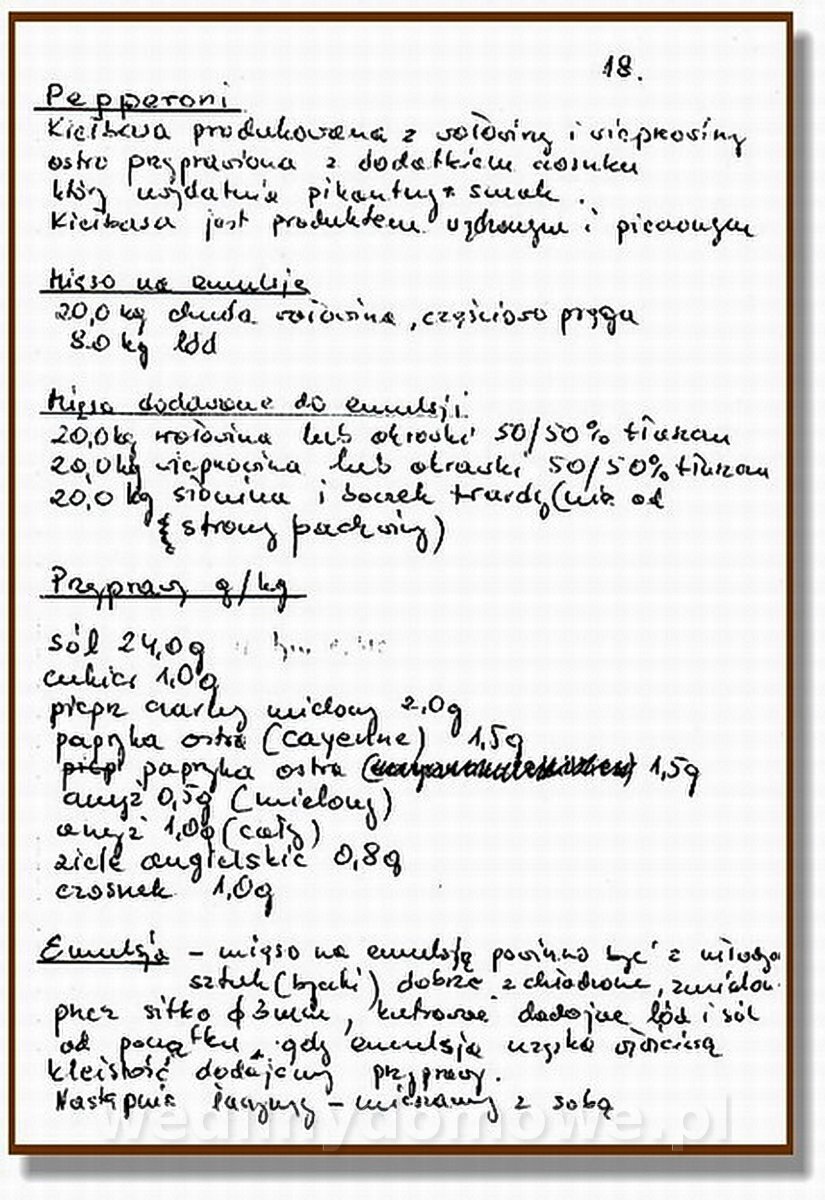 18.
Pepperoni
Kiełbasa produkowana z wołowiny i wieprzowiny
ostro przyprawiona z dodatkiem czosnku
który uwydatnia pikantny smak.
Kiełbasa jest produktem wędzonym i pieczonym
Mięso na emulsję
20,0 kg chuda wołowina, częściowo pręga
8.0 kg lód
Mięsa dodawane do emulsji
20,0 kg wołowina lub skrawki 50/50% tłuszczu
20,0 kg wieprzowina lub skrawki 50/50% tłuszczu
20,0 kg słonina i boczek twardy (nie od
strony pachwiny)
Przyprawy g/kg
sól 24,0g
cukier 1,0g
pieprz czarny mielony 2,0g
papryka ostra (cayenne) 1,5g
papryka ostra 1,5g
anyż 0,5g (mielony)
anyż 1,0g (cały)
ziele angielskie 0,8g
czosnek 1,0g
Emulsja – mięso na emulsję powinno być z
sztuk (byczki) dobrze schłodzone,
przez sitko ϕ 3mm, kutrować dodając lód i sól
od początku, gdy emulsja uzyska właściwą
kleistość dodajemy przyprawy.
Następnie łączymy – mieszamy z sobą
wedlinydomowe.pl